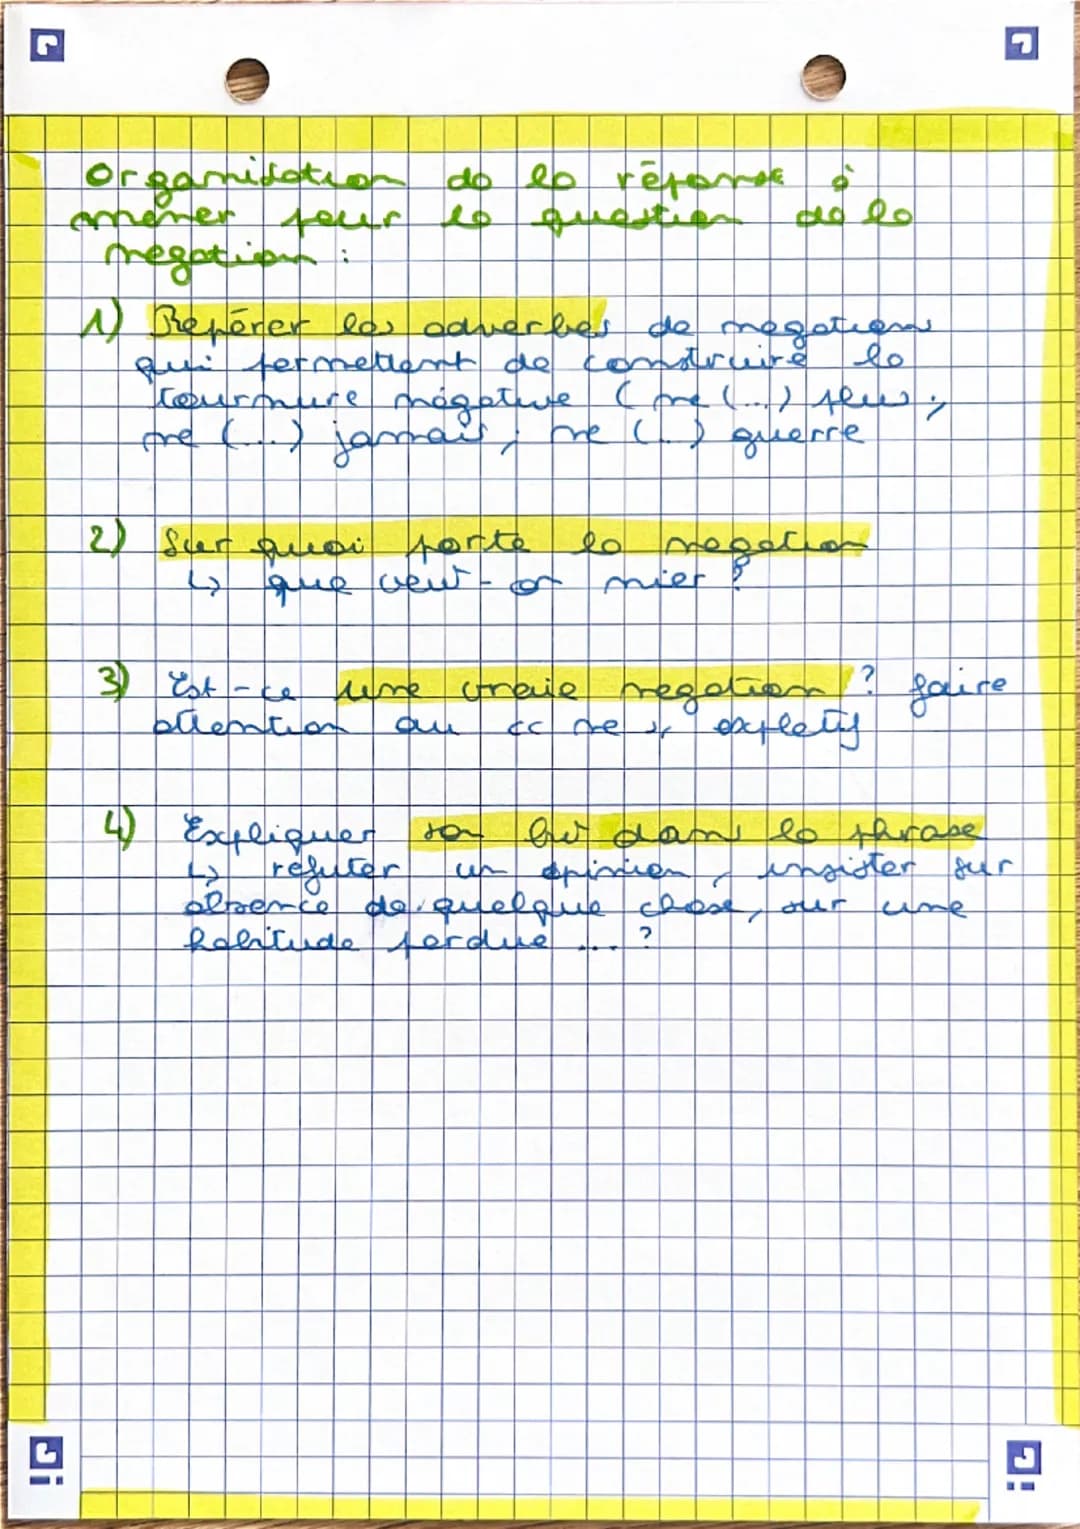 Organisation de la réponse à
mener pour la question de la
negation :
1) Repérer les adverbes de negations
qui permettent de construire la
tournure négative ( ne (...) plus ;
ne (...) jamais ; ne (...) guerre
2) Sur quoi porte la negation
↳ que veut-on nier ?
3) Est-ce une vraie negation ? faire
attention au << ne >> expletif
4) Expliquer son but dans la phrase
↳ réfuter un opinion, insister sur
absence de quelque chose, sur une
habitude perdue ... ?